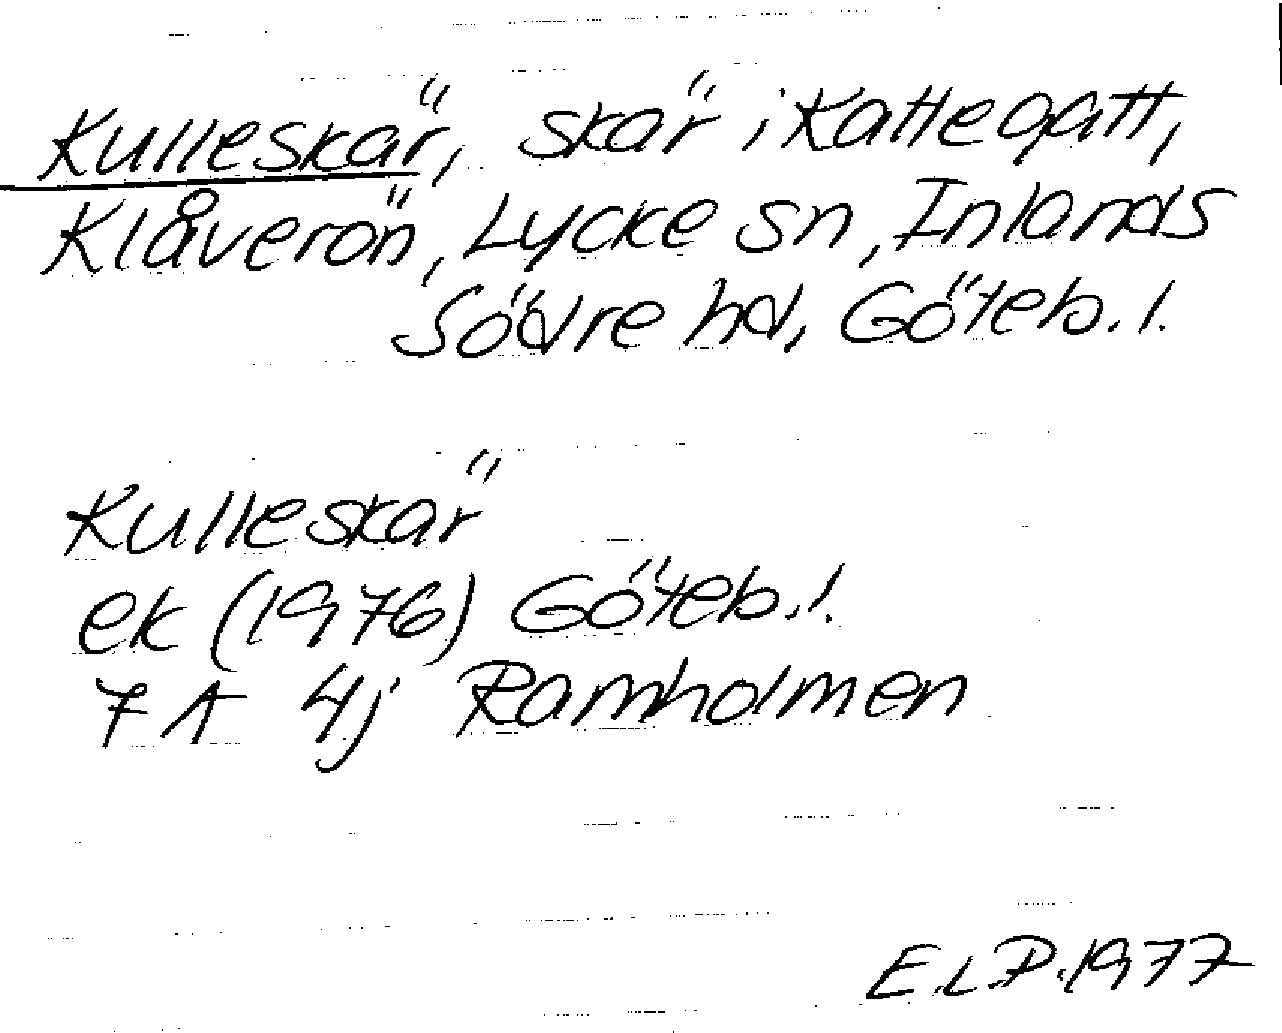 Kulleskär, skär i Kattegatt,
Klåverön, Lycke sn, Inlands
Södre hd, Göteb. l.
Kulleskär
ek (1976) Göteb. l.
7 A 4j Ramholmen
E.L.P. 1977